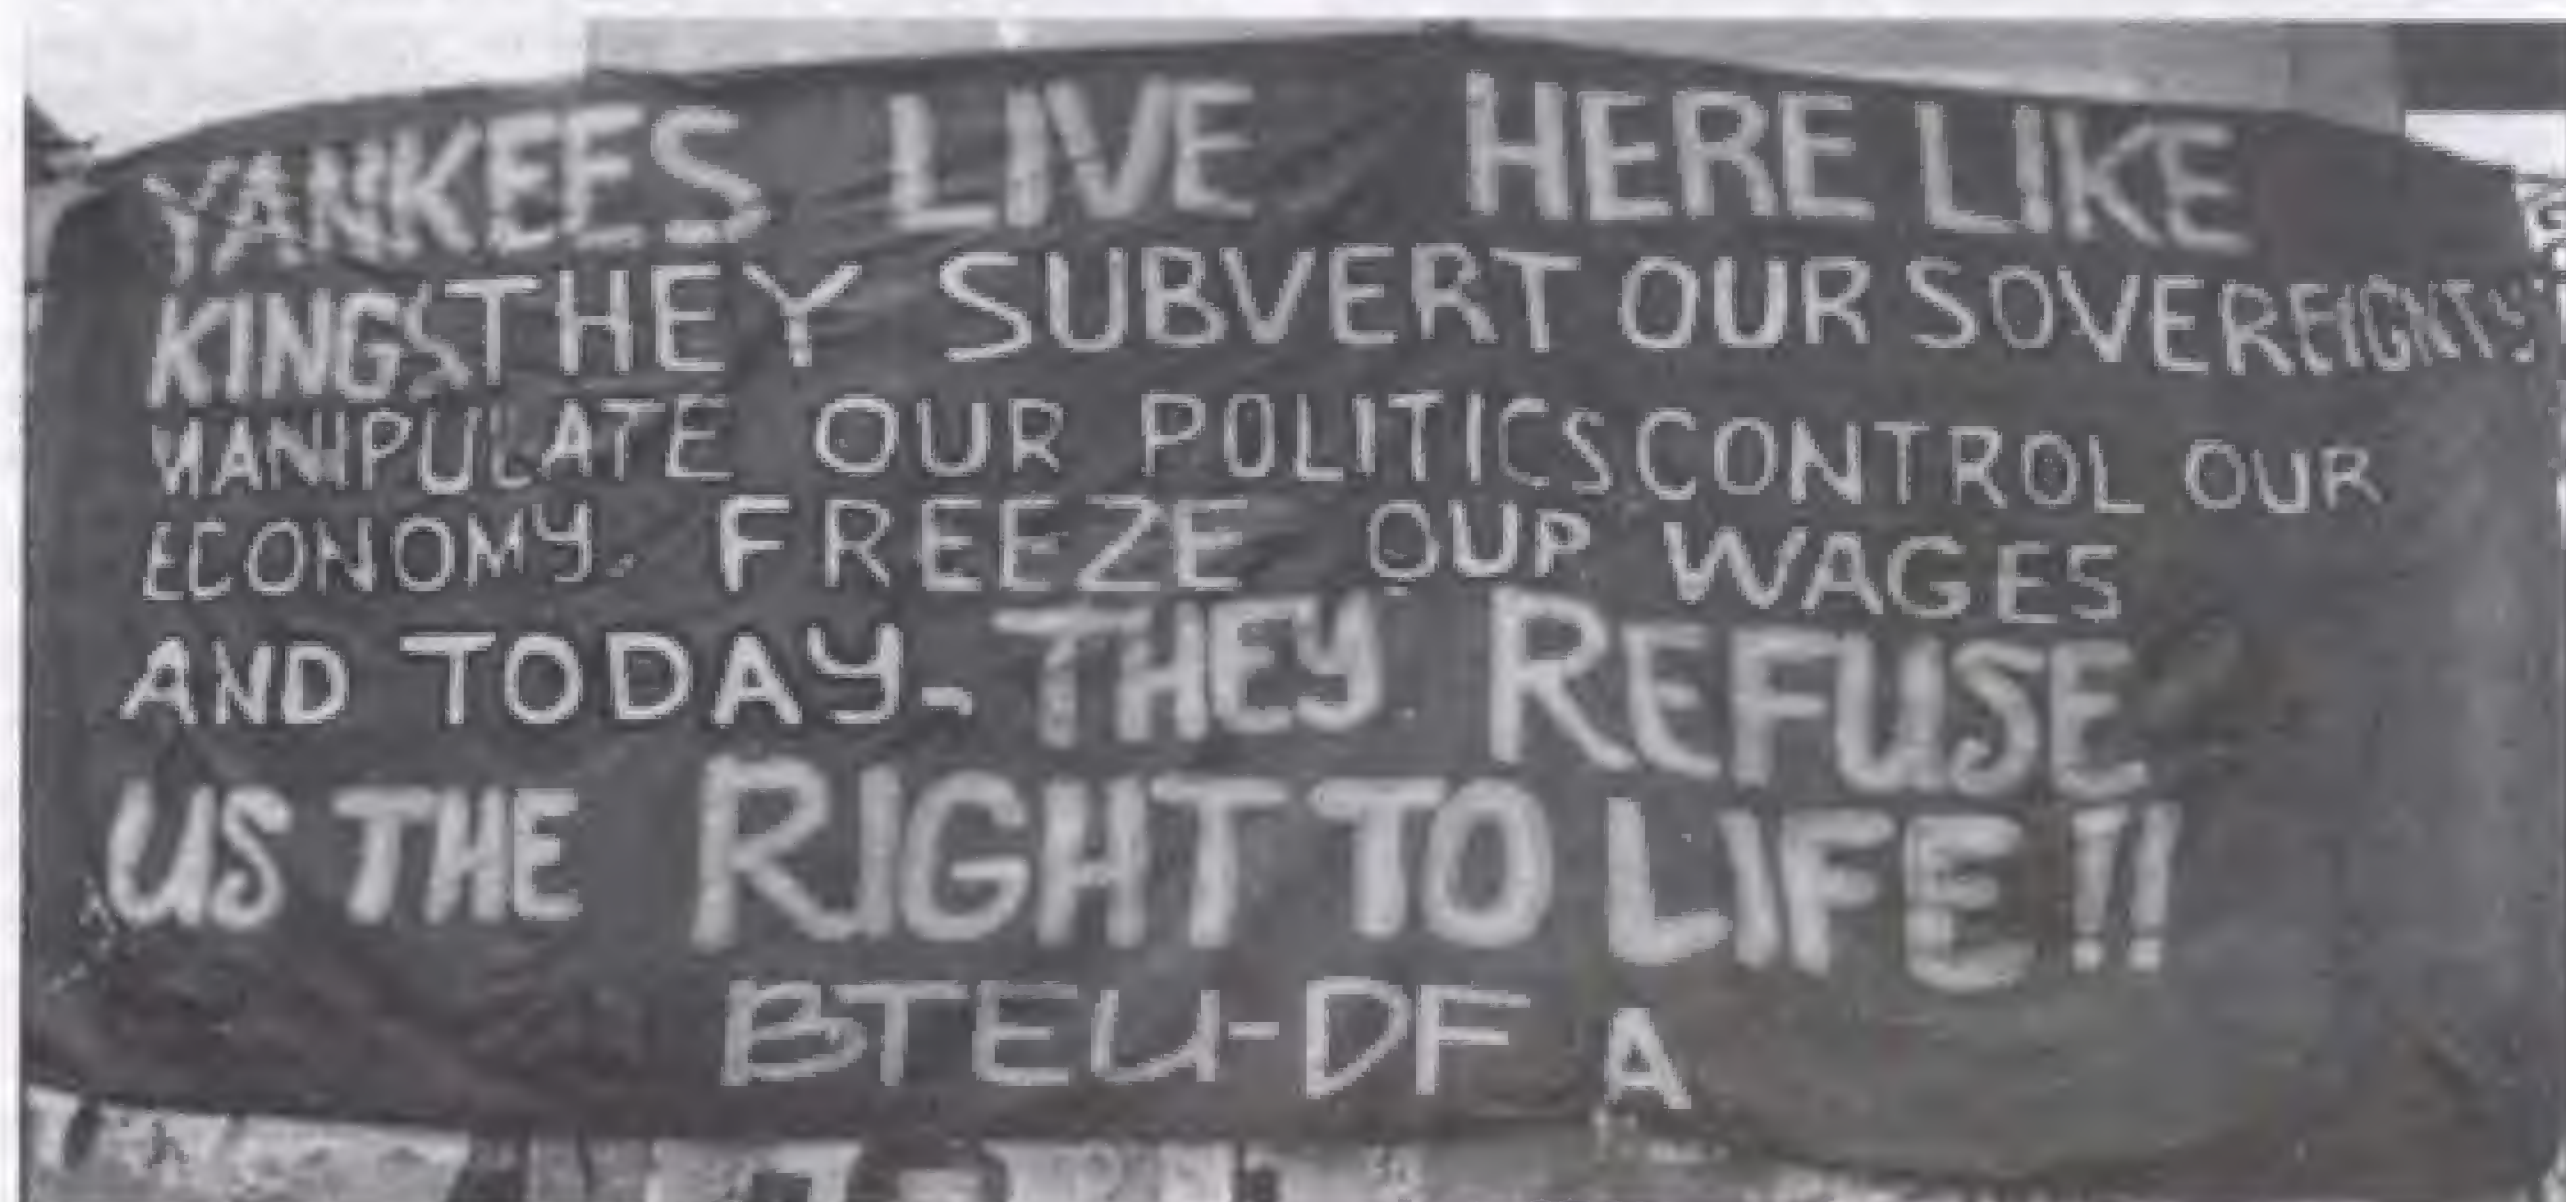 YANKEES LIVE HERE LIKE
KINGS THEY SUBVERT OUR SOVEREIGNTY.
MANIPULATE OUR POLITICS CONTROL OUR
ECONOMY. FREEZE OUR WAGES
AND TODAY- THEY REFUSE
US THE RIGHT TO LIFE!!
BTEU-DFA